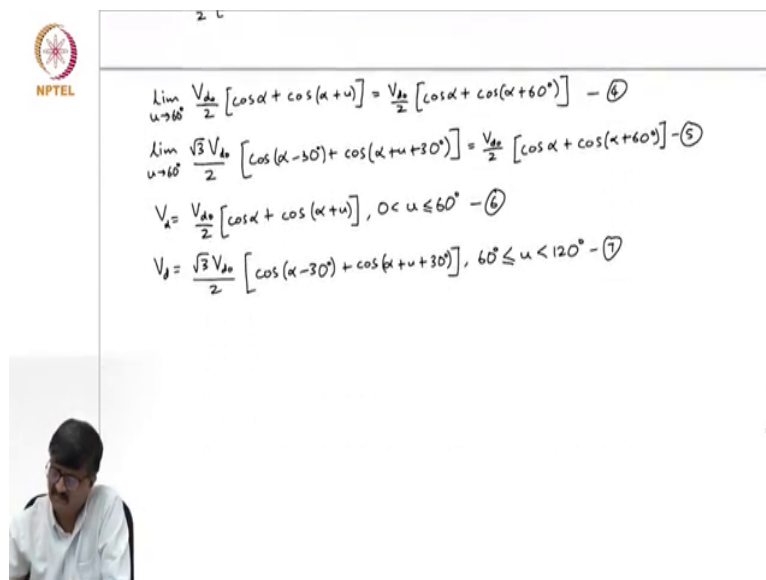 2 [
NPTEL
Lim u→60° V_do/2 [cosα + cos(α+u)] = V_do/2 [cosα + cos(α+60°)] - ④
Lim u→60° √3 V_do/2 [cos(α-30°) + cos(α+u+30°)] = V_do/2 [cosα + cos(α+60°)] - ⑤
V_d = V_do/2 [cosα + cos(α+u)], 0 < u ≤ 60° - ⑥
V_d = √3 V_do/2 [cos(α-30°) + cos(α+u+30°)], 60° ≤ u < 120° - ⑦